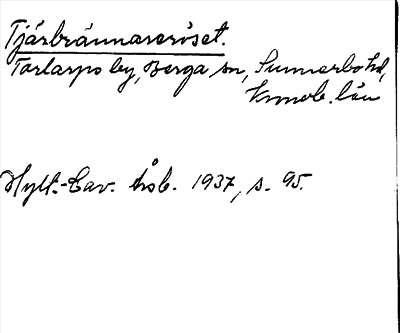 Tjärbrännareröset.
Torlarps by, Berga sn, Sunnerbo hd,
Kronob. län
Hylt.-Cav. årsb. 1937, s. 95.